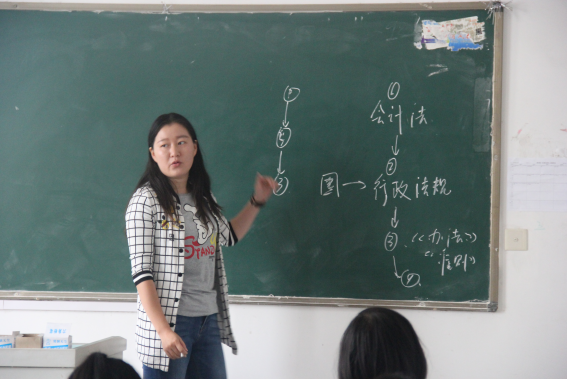 ①
会计法
②
国→行政法规
③ 《办法》
准则》
④
③